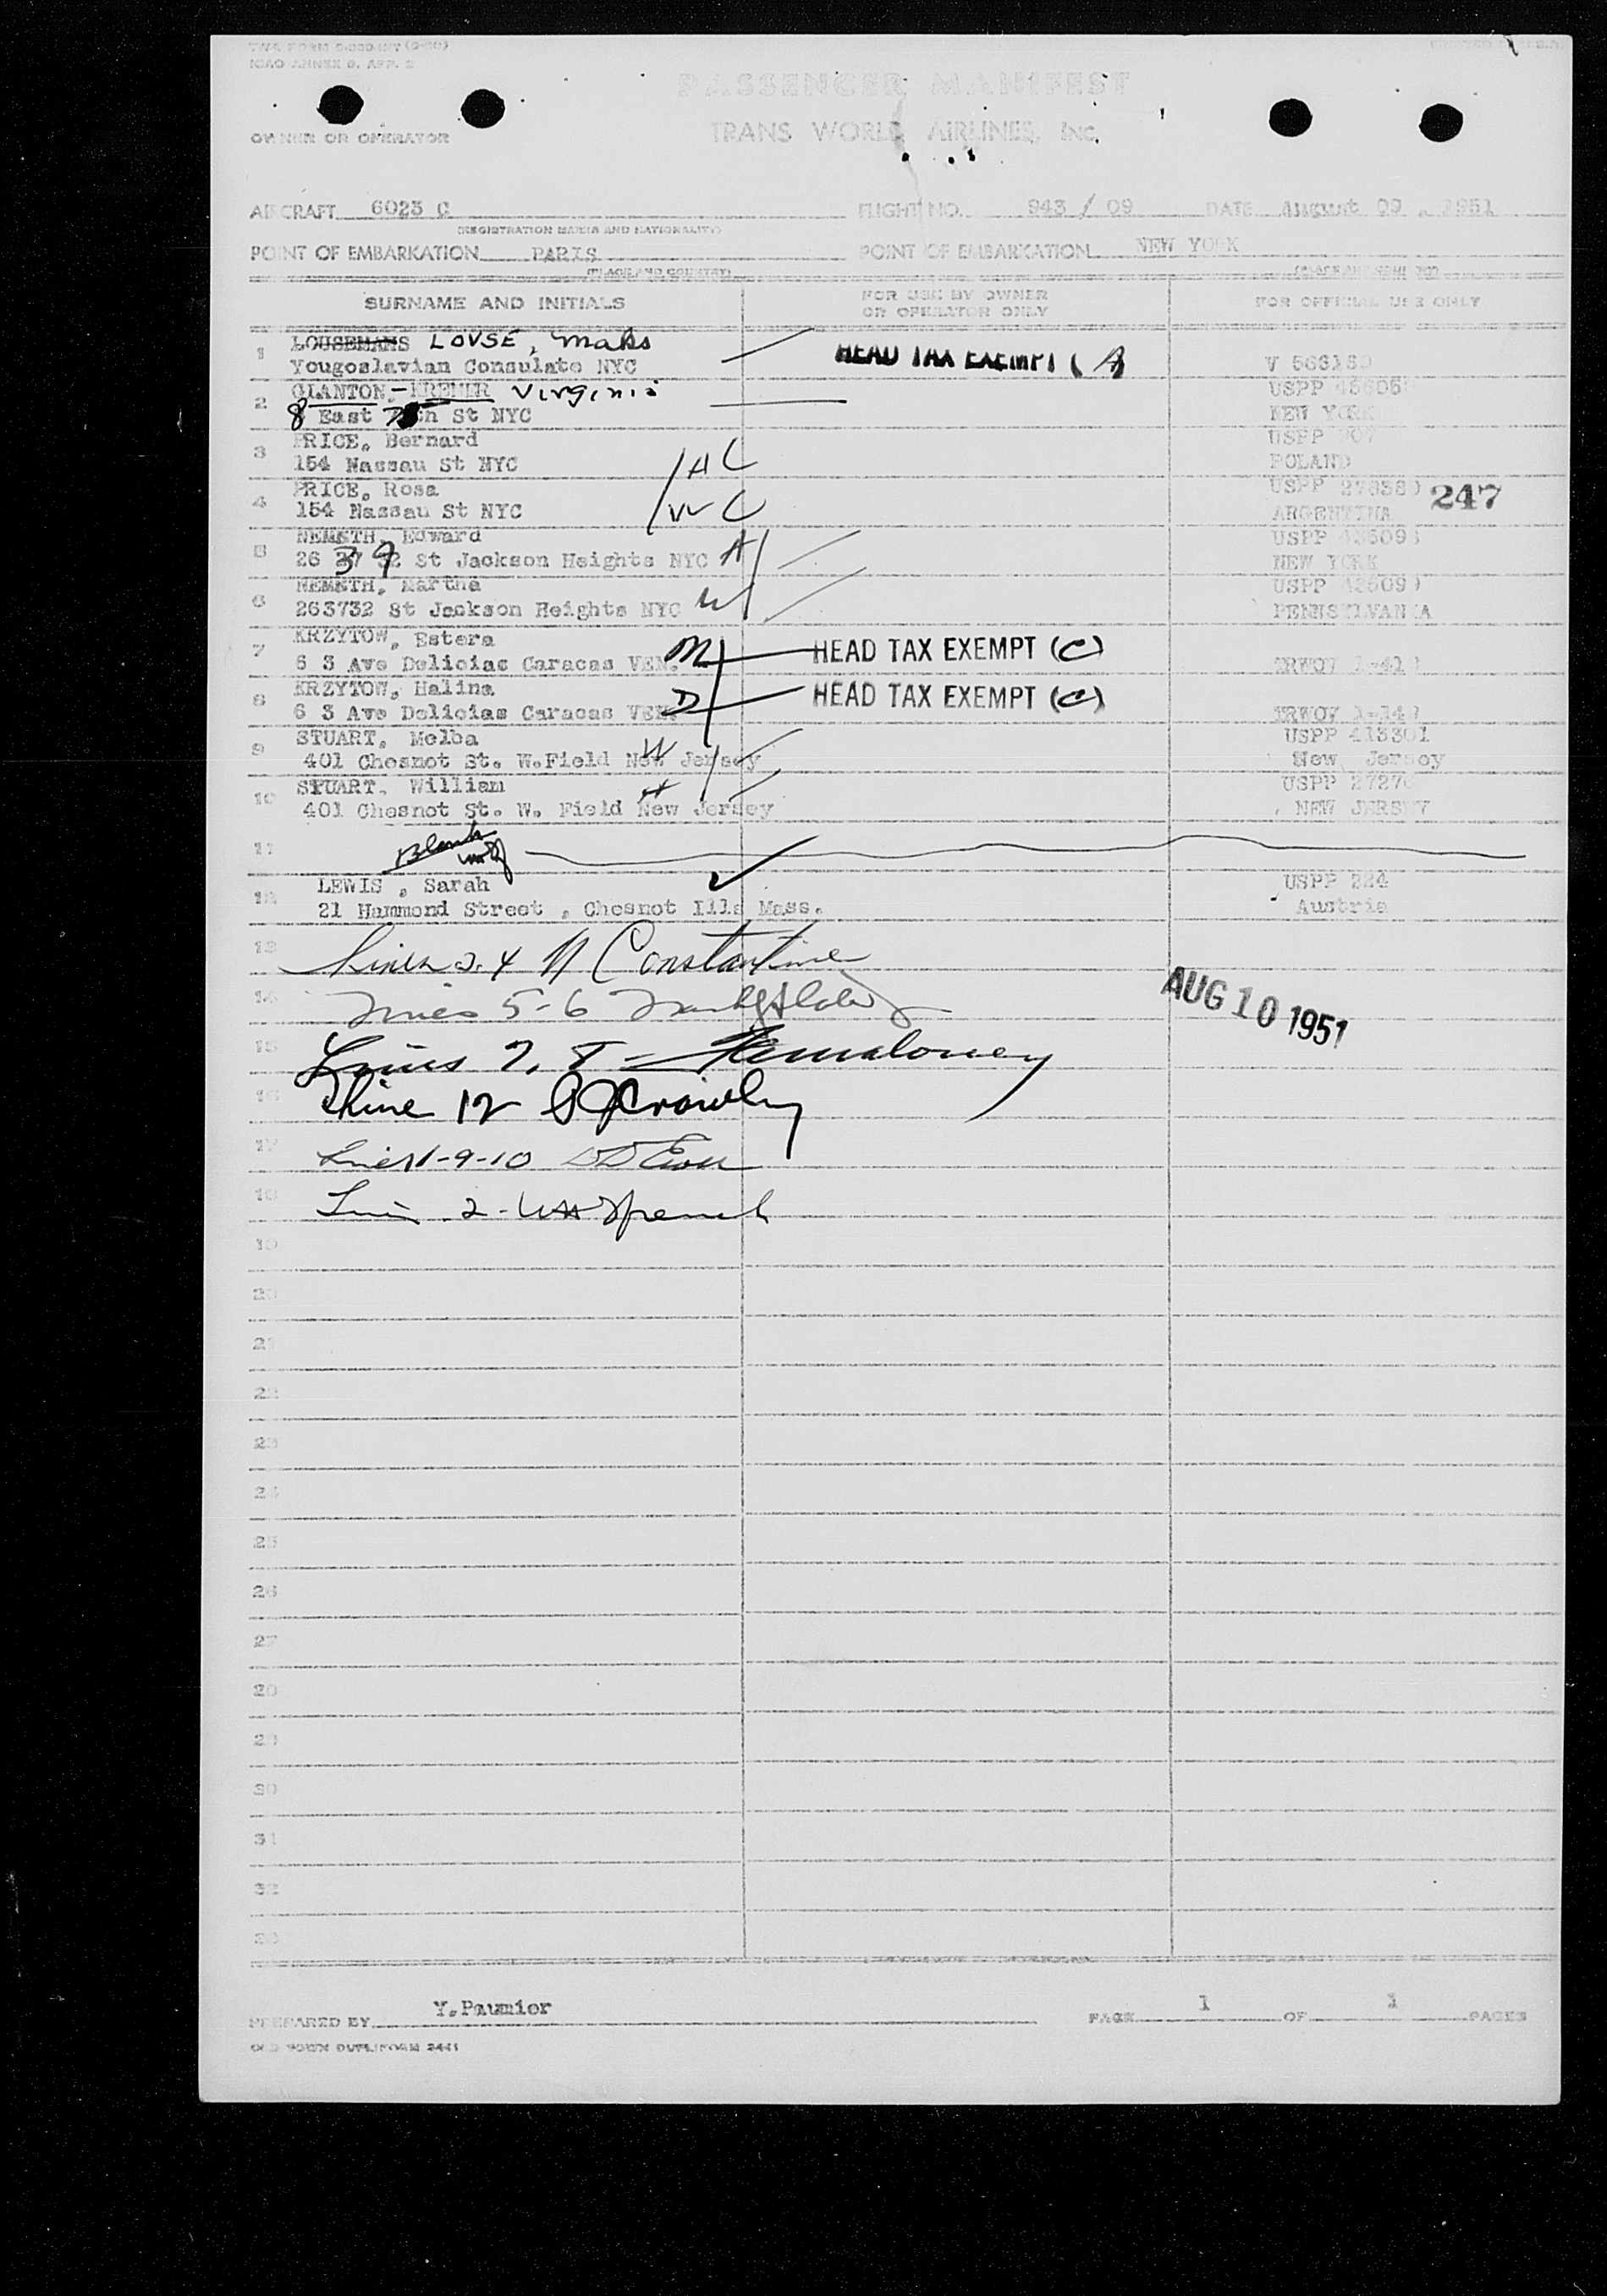 ICAO ANNEX 9, APP. 2
PASSENGER MANIFEST
OWNER OR OPERATOR TRANS WORLD AIRLINES, Inc.
AIRCRAFT 6023 C FLIGHT NO. 943 / 09 DATE August 09, 1951
(REGISTRATION MARKS AND NATIONALITY)
POINT OF EMBARKATION PARIS POINT OF EMBARKATION NEW YORK
(PLACE AND COUNTRY) (PLACE AND COUNTRY)
SURNAME AND INITIALS FOR USE BY OWNER OR OPERATOR ONLY FOR OFFICIAL USE ONLY
1 LOUSEMAKS LOVSE, Maks HEAD TAX EXEMPT (A
Yougoslavian Consulate NYC V 56618
2 GLANTON- Virginia USPP 45605
8 East St NYC NEW YORK
3 PRICE, Bernard USPP 207
154 Nassau St NYC H C POLAND
4 PRICE, Rosa USPP 27638 247
154 Nassau St NYC W C ARGENTINA
5 NEMETH, Edward USPP
26 St Jackson Heights NYC H NEW YORK
6 NEMETH, Martha USPP
263732 St Jackson Heights NYC W PENNSYLVANIA
7 KRZYTOW, Estera HEAD TAX EXEMPT (C)
6 3 Ave Delicias Caracas VEN. M
8 KRZYTOW, Halina HEAD TAX EXEMPT (C)
6 3 Ave Delicias Caracas VEN. D
9 STUART, Melba USPP 413301
401 Chesnot St. W.Field New Jersey W New Jersey
10 STUART, William USPP 2727
401 Chesnot St. W. Field New Jersey H NEW JERSEY
11 Blank
12 LEWIS, Sarah USPP 224
21 Hammond Street, Chesnot Ills Mass. Austria
13 Lines 3.4 N Constantine
14 Lines 5-6
AUG 10 1951
15 Lines 7, 8 -
16 Line 12 Crowley
17 Lines 1-9-10
18 Line 2-
19
20
21
22
23
24
25
26
27
28
29
30
31
32
33
PREPARED BY Y.Paumier PAGE 1 OF 1 PAGES